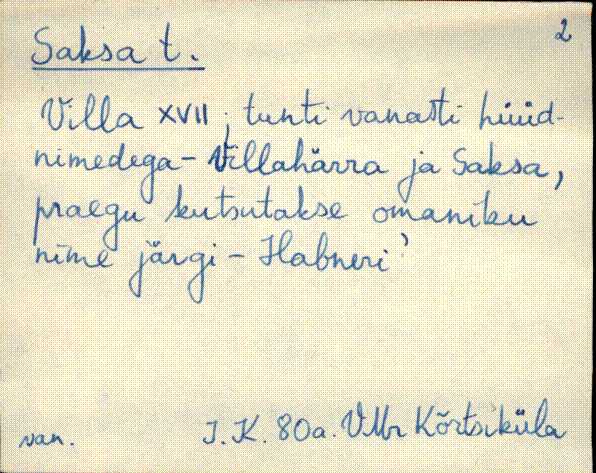 Saksa t. 2
Villa XVII; tunti vanasti hüüd-
nimedega - Villahärra ja Saksa,
praegu kutsutakse omaniku
nime järgi - Habneri?
van. J. K. 80a. VMr Kõrtsiküla